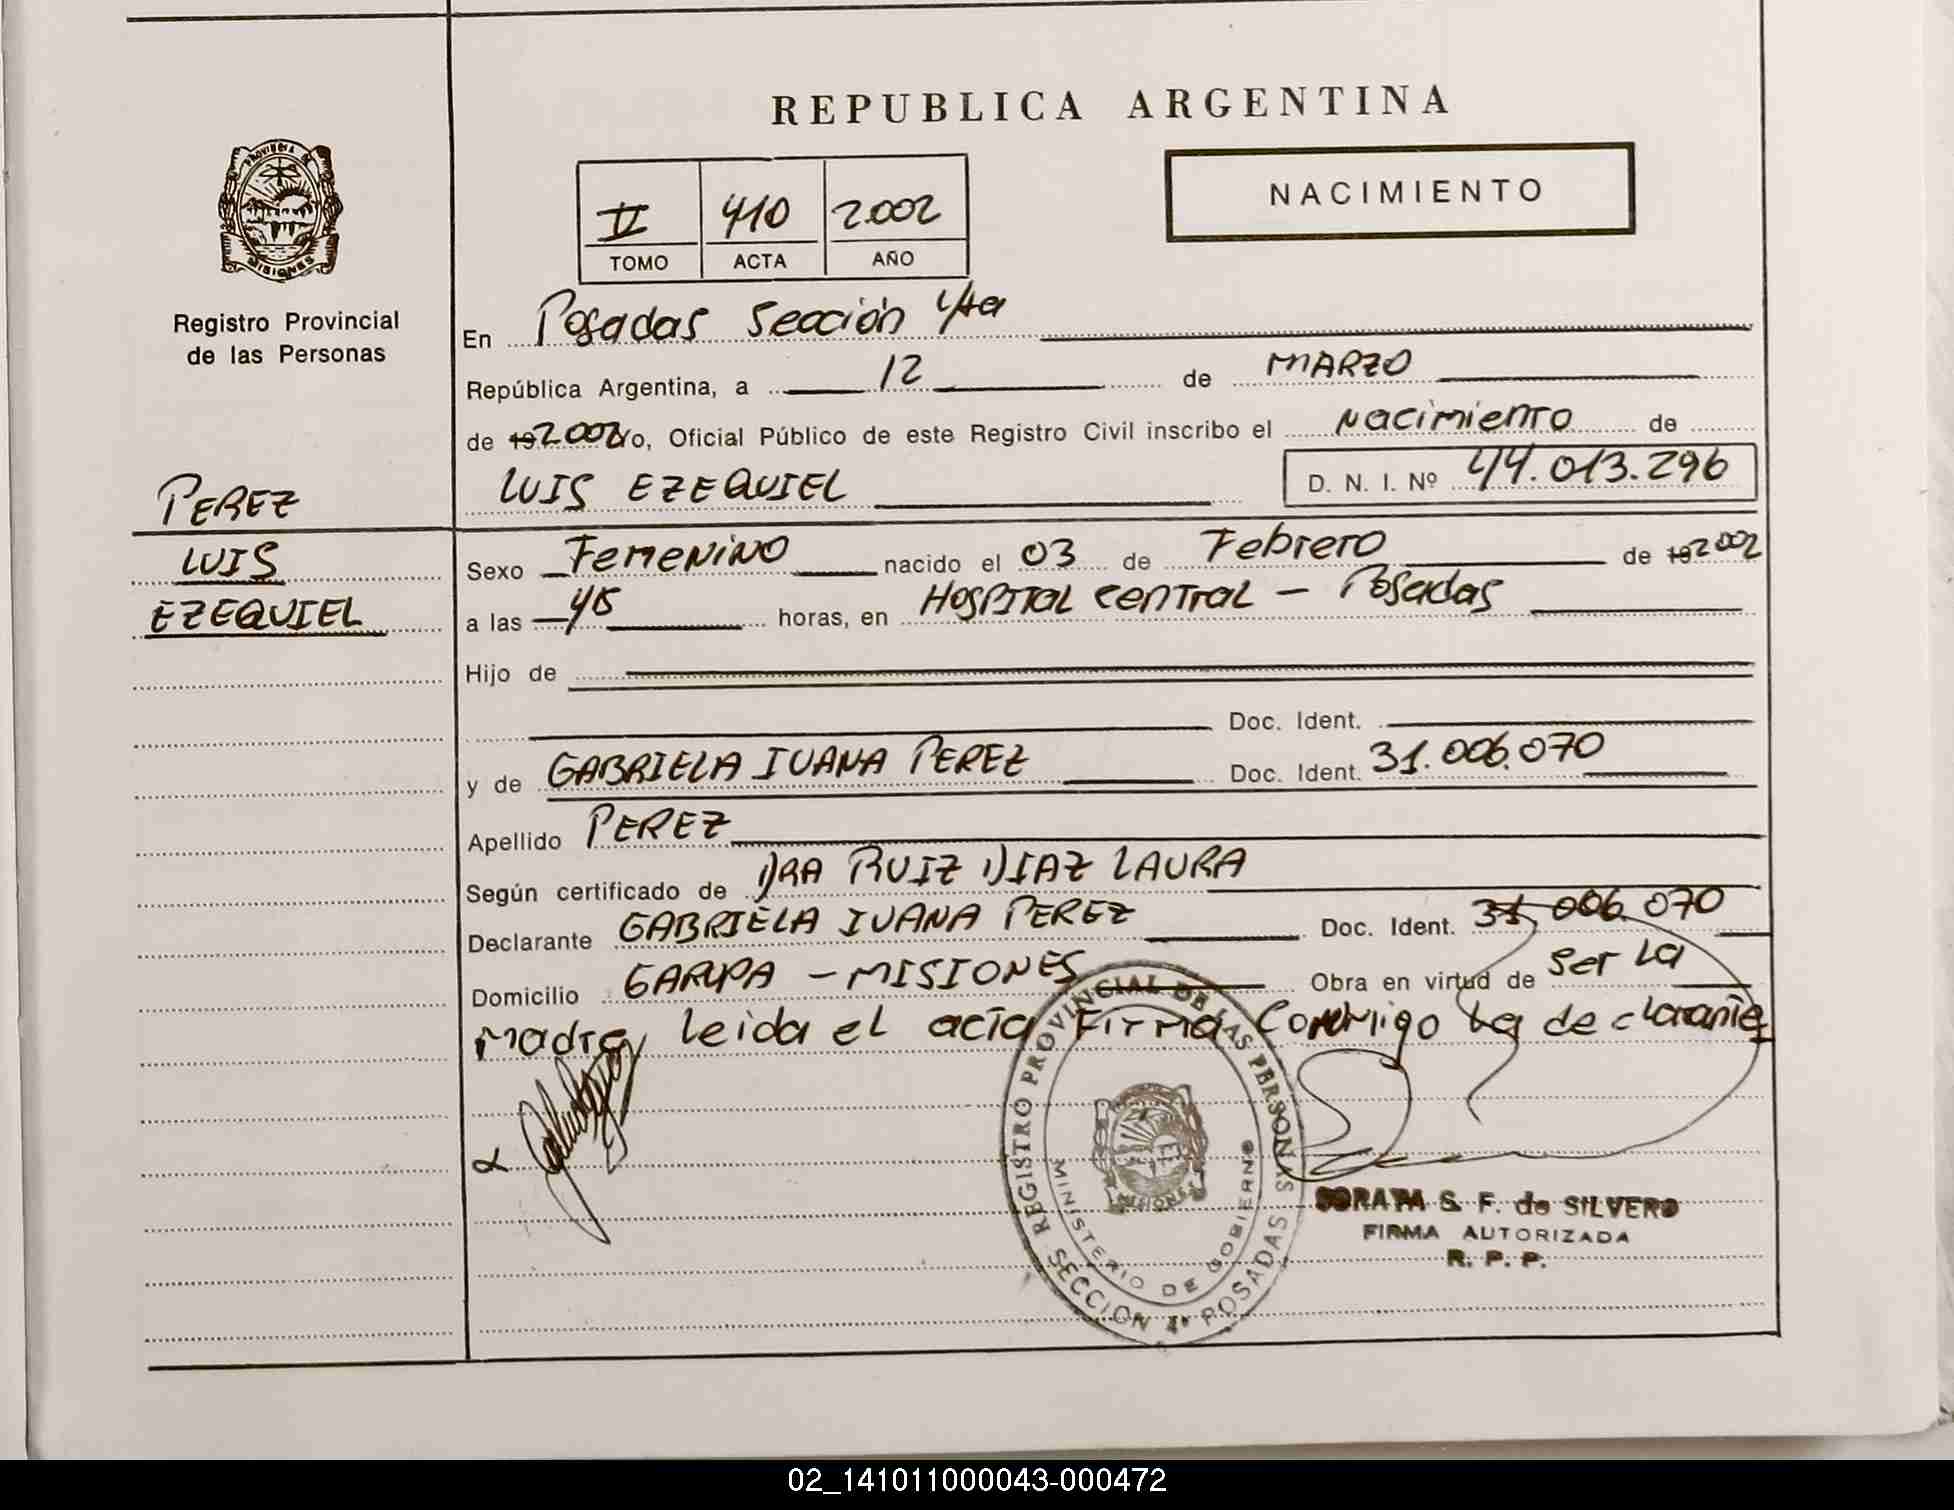 REPUBLICA ARGENTINA
PROVINCIA DE
MISIONES
Registro Provincial
de las Personas
NACIMIENTO
II 410 2.002
TOMO ACTA AÑO
En Posadas Sección 4ta
República Argentina, a 12 de MARZO
de 19 2.002 Yo, Oficial Público de este Registro Civil inscribo el Nacimiento de
LUIS EZEQUIEL D. N. I. Nº 44.013.296
PEREZ
LUIS
EZEQUIEL
Sexo Femenino nacido el 03 de Febrero de 19 2002
a las horas, en HOSPITAL CENTRAL - Posadas
Hijo de
Doc. Ident.
y de GABRIELA IVANA PEREZ Doc. Ident. 31.006.070
Apellido PEREZ
Según certificado de DRA RUIZ DIAZ LAURA
Declarante GABRIELA IVANA PEREZ Doc. Ident. 31.006.070
Domicilio GARUPA - MISIONES Obra en virtud de ser la
Madre, leida el acta Firma Conmigo la declarante
REGISTRO PROVINCIAL DE LAS PERSONAS
MINISTERIO DE GOBIERNO
MISIONES
SECCION 4ª POSADAS
SORAYA S. F. de SILVERO
FIRMA AUTORIZADA
R. P. P.
02_141011000043-000472